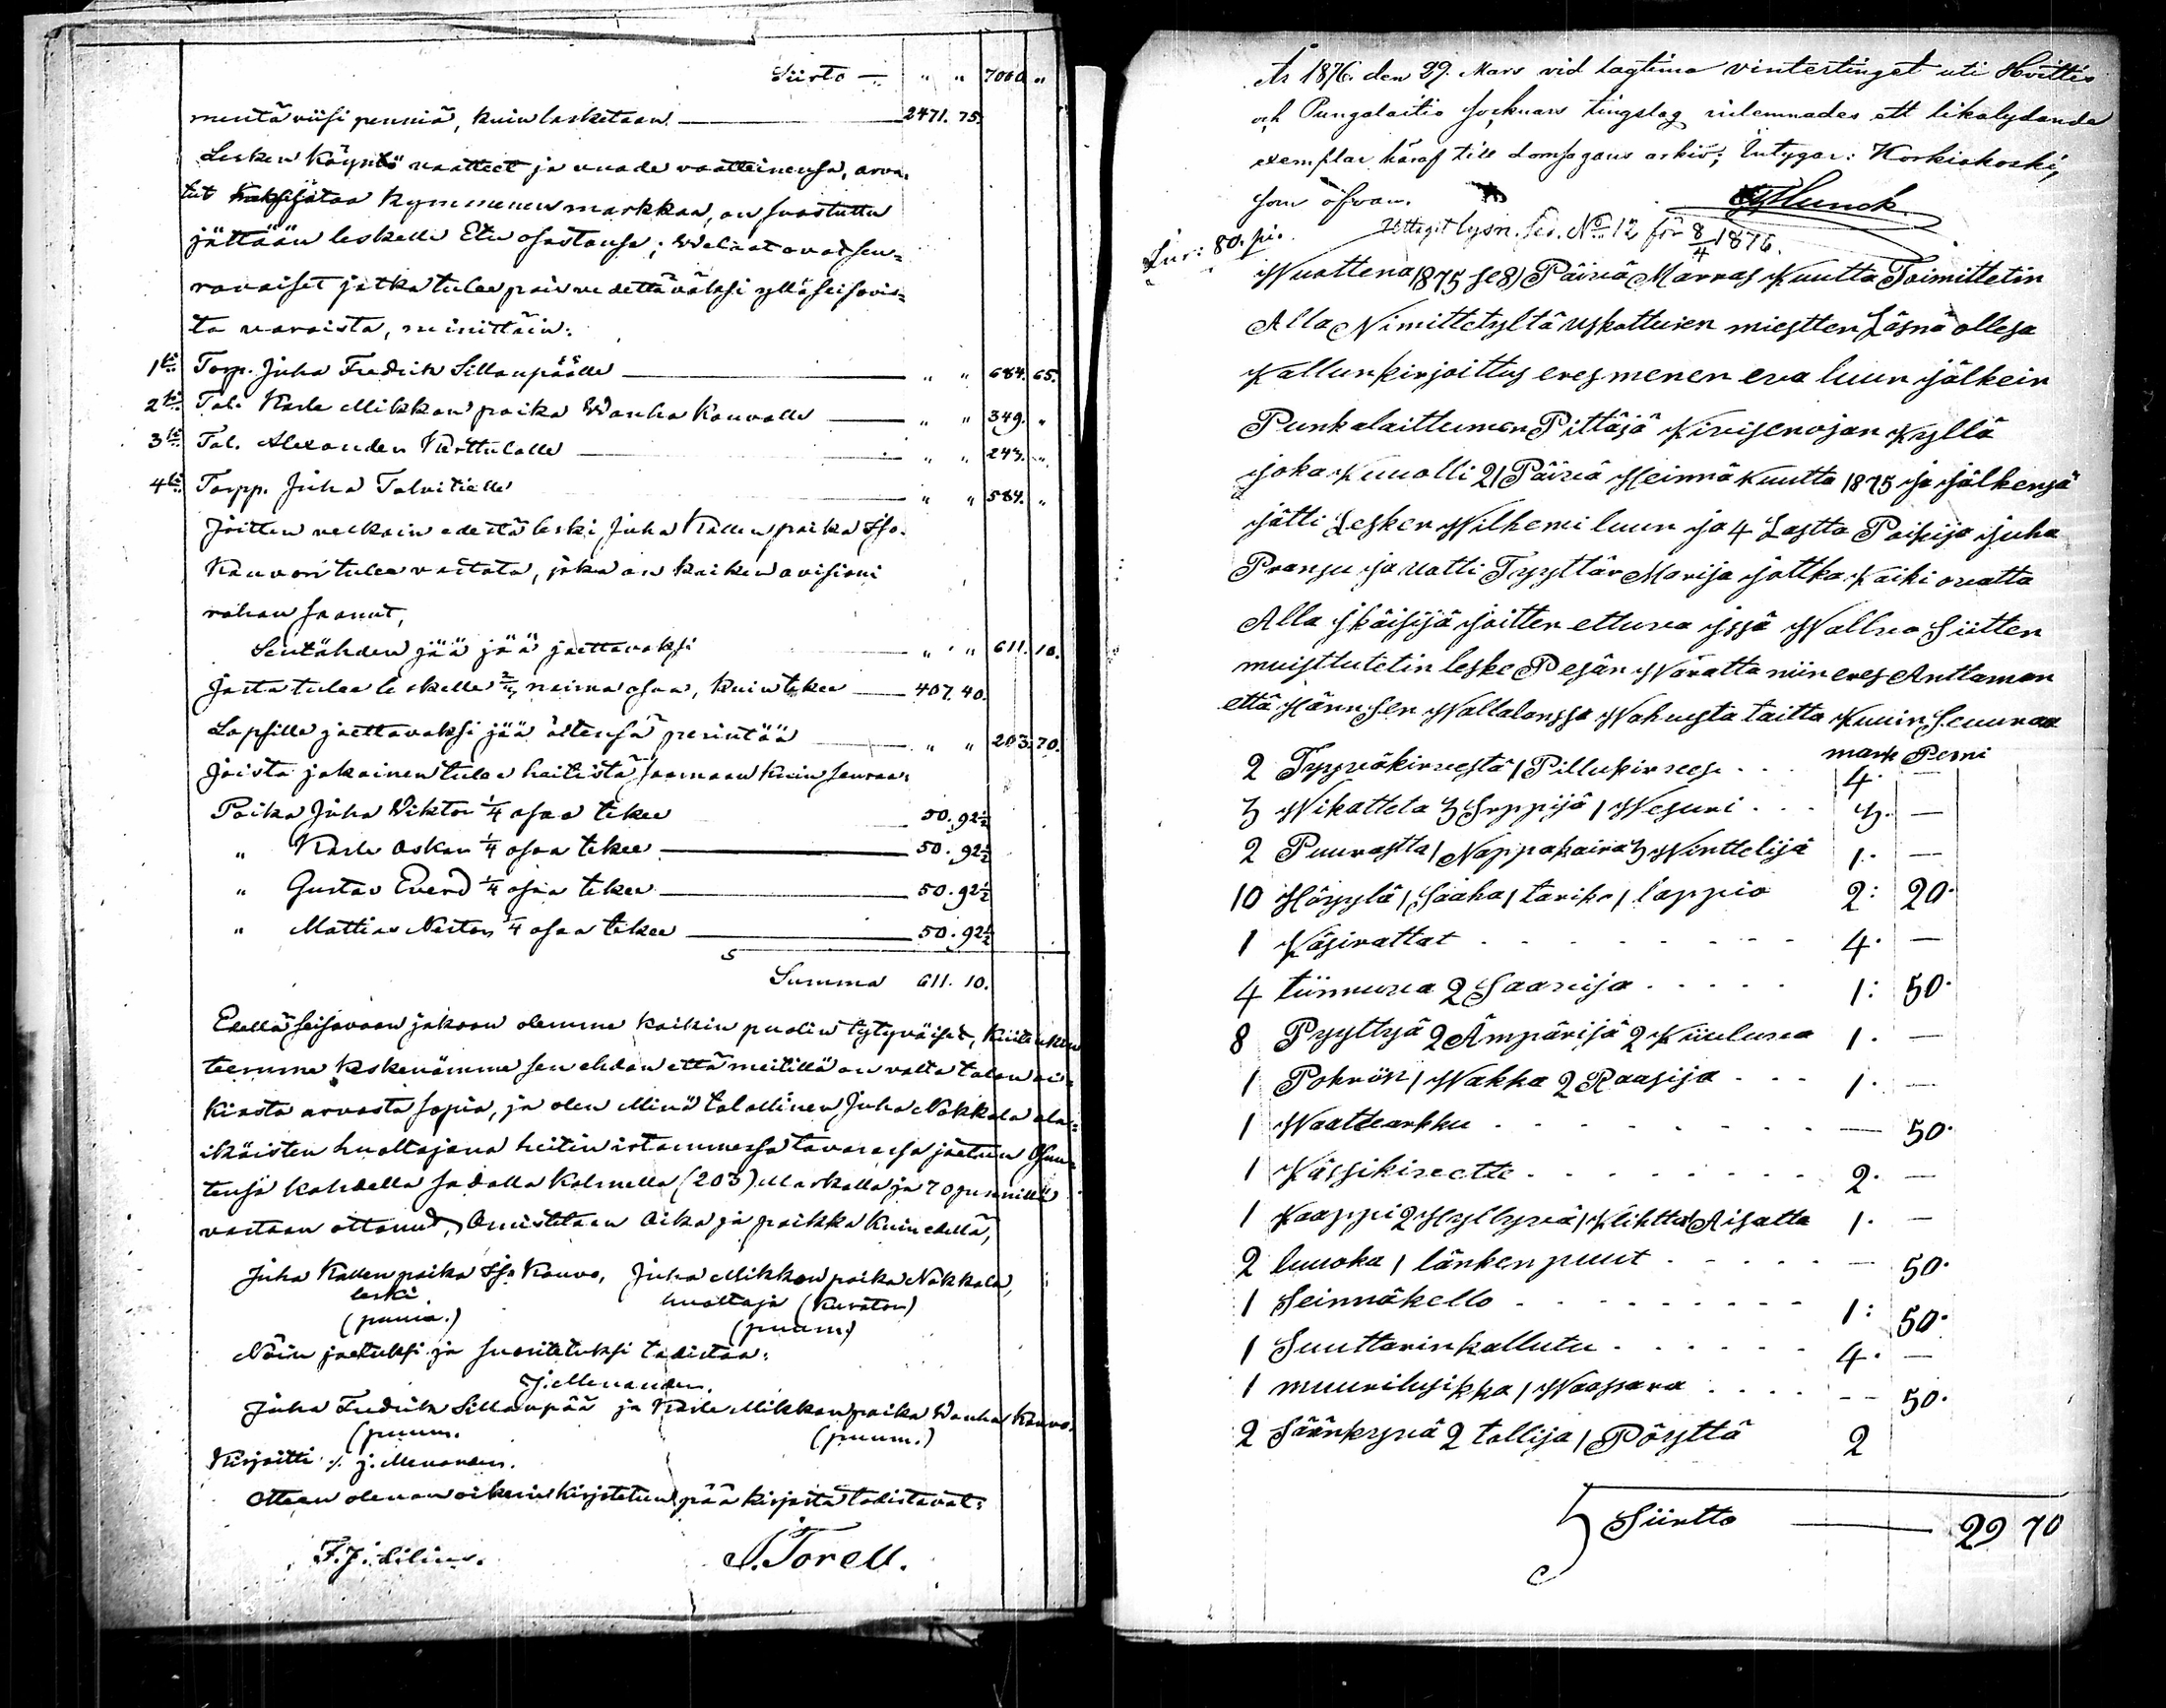 Siirto — " " 7060. "
mentä viisi penniä, kuin lasketaan — 2471. 75.
Lesken Käyntö vaatteet ja vuode vaatteinensa, arva-
tut Kymmenen markkaa, on suostuttu
jättään leskelle Etu osastansa; Welaat ovat seu-
ravaiset jotka tulee pois vedettäväksi ylläseisovis-
ta varoista, nimittäin:
1ksi Torp. Juha Fredrik Sillanpäälle — " " 684. 65.
2ksi Tal. Kaarle Mikkan poika Wanha Kauvolle — " " 349. "
3ksi Tal. Alexander Karttulalle — " " 243. "
4ksi Torpp. Juha Talvitielle — " " 584. "
Joitten velkain edestä leski, Juha Kallen poika Iso-
Kauvon tulee vastata, joka on kaiken avisioni
rahan saanut,
Sentähden jää jää jaettavaksi — " " 611. 10.
Josta tulee leskelle 2/3 naima osaa, kuin tekee — 407. 40.
Lapsille jaettavaksi jää äitensä perintöä — " " 203. 70.
Joista jokainen tulee heitistä saamaan kuin seuraa:
Poika Juha Wiktor 1/4 osaa tekee 50. 92½
" Kaarle Oskar 1/4 osaa tekee — 50. 92½
" Gustav Everd 1/4 osaa tekee — 50. 92½
" Mattias Nestor 1/4 osaa tekee — 50. 92½
Summa 611. 10.
Edellä seisovaan jakoon olemme kaikin puolin tytyväiset, kuitenkin
teemme keskenämme sen ehdon että meitillä on valta talon oi-
kiasta arvosta sopia, ja olen Minä talollinen Juha Nakkala ala-
ikäisten huoltajana heitin irtammessa tavarassa jaetun Osuu-
tensa Kahdella sadalla Kolmella (203) Markalla ja 70 pennillä
vastaan ottanut, Omistetaan Aika ja paikka kuin edellä,
Juha Kallen poika Iso Kauvo, Juha Mikkan poika Nakkala,
leski huoltaja (Kurator)
(puum.) (puum.)
Näin jaetuksi ja suoritetuksi todistaa:
J. Menander.
Juha Fredrik Sillanpää ja Kaarle Mikkan poika Wanha Kauvo.
(puum. (puum.)
Kirjoitti J. Menander.
Otteen olevan oikein kirjotetun pää kirjasta todistavat:
F. J. Lilius. J. Torell.
År 1876. den 29. Mars vid lagtima vintertinget uti Hvittis
och Pungalaitio socknars tingslag inlemnades ett likalydande
exemplar häraf till domsagans arkiv; Intygar: Korkiakoski,
som ofvan. Munck
Uttagit lysn. sed. No 12 för 8/4 1876.
Lös: 80. pi.
Wuottena 1875 se 8) Päivä Marras Kuutta Toimittetin
Alla Nimittetyltä uskottuien miestten Läsnä ollesa
Kallunkirjoittus eres menen eva luun jälkein
Punkalaittumen Pittäjä Kivisenojan Kyllä
joka Kuuolli 21 Päivä Heinnä Kuutta 1875 ja jälkensä
jätti Lesken Wilhemi luun ja 4 Lastta Poikija Juha
Pransu ja Matti Tyyttär Marija jottka Kaiki ovatta
Alla Jkäisijä joitten ettuva Issä Wallvo Siitten
muisttutetin leske Pesän Waratta niin eres Anttaman
että Hänn Sen Wallalanssa Wahuesta taitta Kuuin Seuraa
mark Peni
2 Tyyväkirvestä 1 Pillukirvees . . . 4. —
3 Wikatteta 3 Sirppijä 1 Wesuri . . . 3. —
2 Puurastta 1 Nappakaira 3 Winttelijä 1. —
10 Höyylä 1 Saaha 1 tarika 1 lappio 2: 20.
1 Käsirattat . . . . . 4. —
4 tiinnuva 2 Saavija . . . . . 1: 50.
8 Pyyttyä 2 Ämpärijä 2 Kiiuluva 1. —
1 Pokrön 1 Wakka 2 Raasija . . . 1. —
1 Waattearkku . . . . . — 50.
1 Kässikirette . . . . . 2. —
1 Kaappi 2 Hyllyvä 1 Klihtta Aisatta 1. —
2 luuoka 1 länken puut . . . . . — 50.
1 Seinnäkello . . . . . 1: 50.
1 Suuttarinkallutu . . . . . 4. —
1 muurilusikka 1 Waassara . . . . -- 50.
2 Säänkyvä 2 tollija 1 Pöyttä 2
Siirtto — 29 70